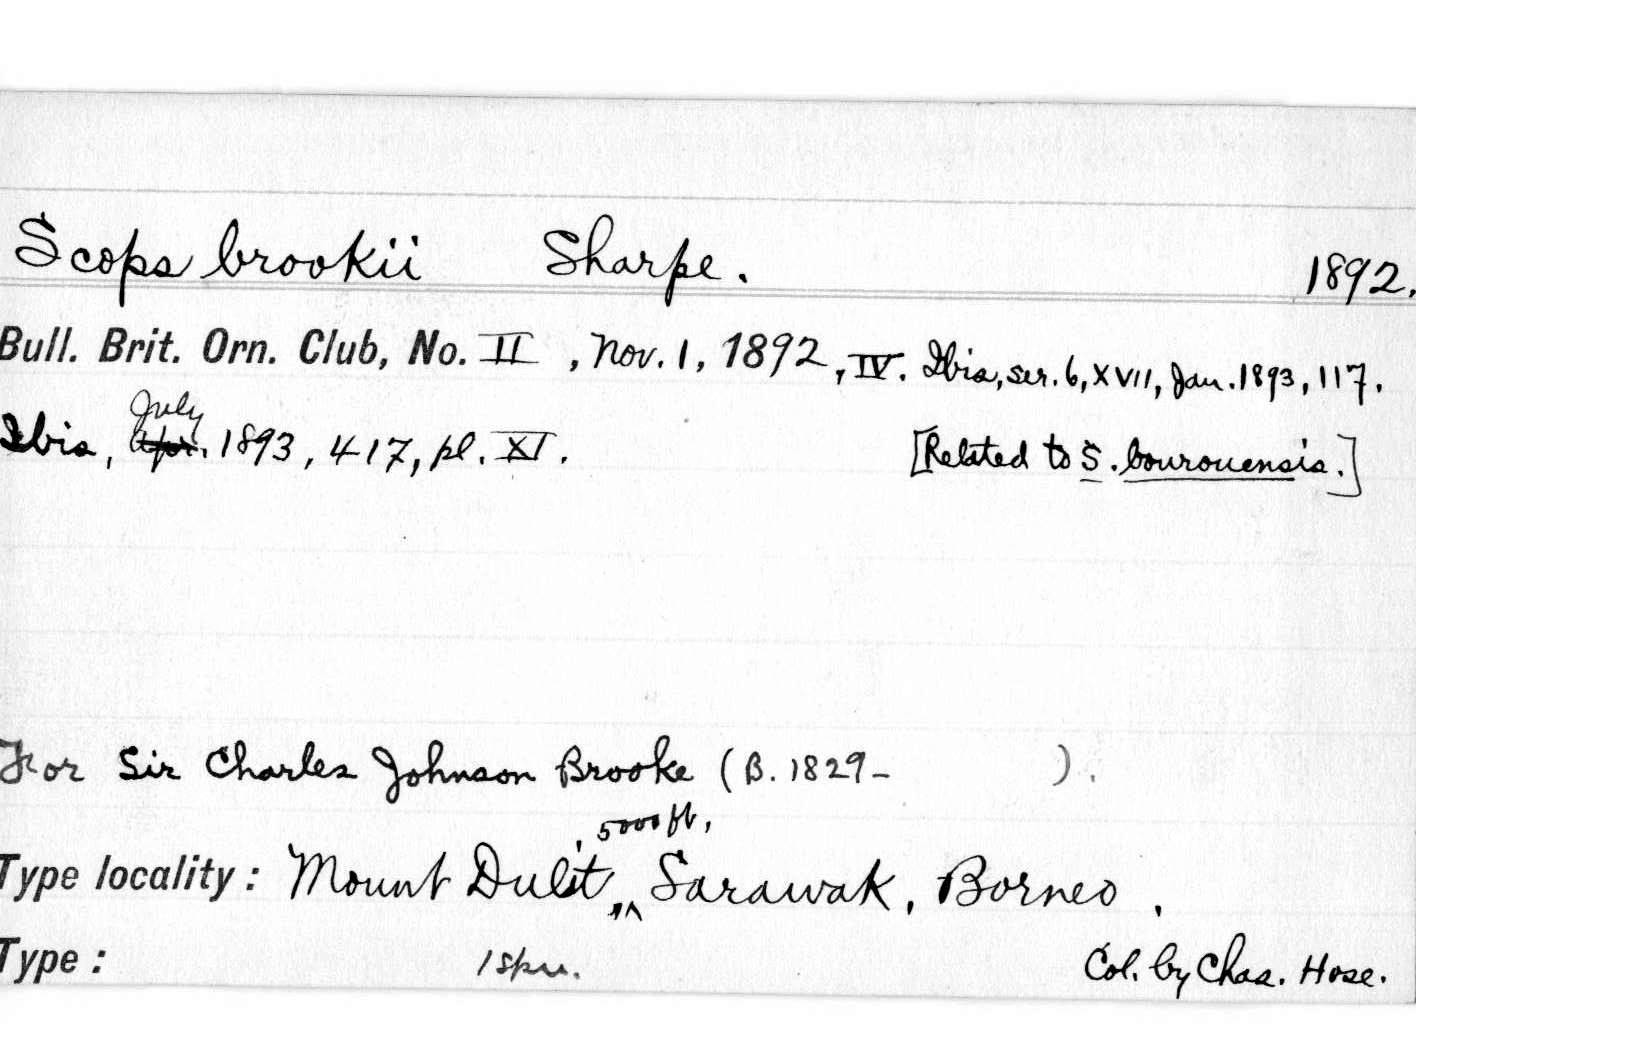 Scops brookii Sharpe. 1892.
Bull. Brit. Orn. Club, No. II, Nov. 1, 1892, IV. Ibis, ser. 6, XVII, Jan. 1893, 117.
July
Ibis, Apr. 1893, 417, pl. XI. [Related to S. bourouensis.]
For Sir Charles Johnson Brooke (B. 1829- ).
5000 ft,
Type locality: Mount Dulit, Sarawak, Borneo.
Type: 1 spm. Col. by Chas. Hose.